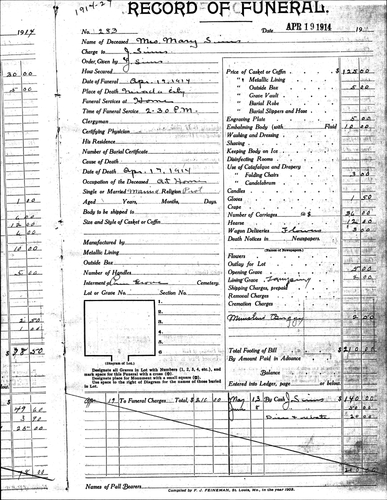 1914-27
RECORD OF FUNERAL.
No. 283
Date APR 19 1914 191
1914
Name of Deceased Mrs. Mary Sims
Charge to J. Sims
Order, Given by J. Sims
How Secured
Date of Funeral Apr. 19, 1914
Place of Death
Funeral Services at Home
Time of Funeral Service 2-30 P.M.
Clergyman
Certifying Physician
His Residence
Number of Burial Certificate
Cause of Death
Date of Death Apr. 17, 1914
Occupation of the Deceased At Home
Single or Married Married Religion Prot
Aged Years, Months, Days.
Body to be shipped to
Size and Style of Casket or Coffin
Manufactured by
Metallic Lining
Outside Box
Number of Handles
Interment Grove Cemetery.
Lot or Grave No. Section No.
1.
2.
3.
4.
5.
6.
(Diagram of Lot.)
Designate all Graves in Lot with Numbers (1, 2, 3, 4, etc.), and
mark space for this Funeral with a cross (X).
Designate place for Monument with a small square
Use space to the right of Diagram for the names of those buried
in Lot.
19 To Funeral Charges Total, $ 210.00
Price of Casket or Coffin $ 125.00
" " Metallic Lining
" " Outside Box 5.00
" " Grave Vault
" " Burial Robe
" " Burial Slippers and Hose
Engraving Plate 5.00
Embalming Body (with Fluid 10.00
Washing and Dressing
Shaving
Keeping Body on Ice
Disinfecting Rooms
Use of Catafalque and Drapery
" " Folding Chairs 3.00
" " Candelabrum
Candles
Gloves 1.50
Crape
Number of Carriages @ $ 36.00
Hearse 12.00
Wagon Deliveries Flowers 3.00
Death Notices in Newspapers.
(Names of Newspapers)
Flowers
Outlay for Lot
Opening Grave 5.00
Lining Grave
Shipping Charges, prepaid
Removal Charges
Cremation Charges
Minister Buggy
Total Footing of Bill $ 210.00
By Amount Paid in Advance
Balance
Entered into Ledger, page or below.
May 13 By Cash J. Sims $ 140.00
June 8 50.00
Discount 20.00
30.00
5.00
1.00
10.00
5.00
98.50
Names of Pall Bearers
Compiled by F. J. FEINEMAN, St. Louis, Mo., in the year 1903.